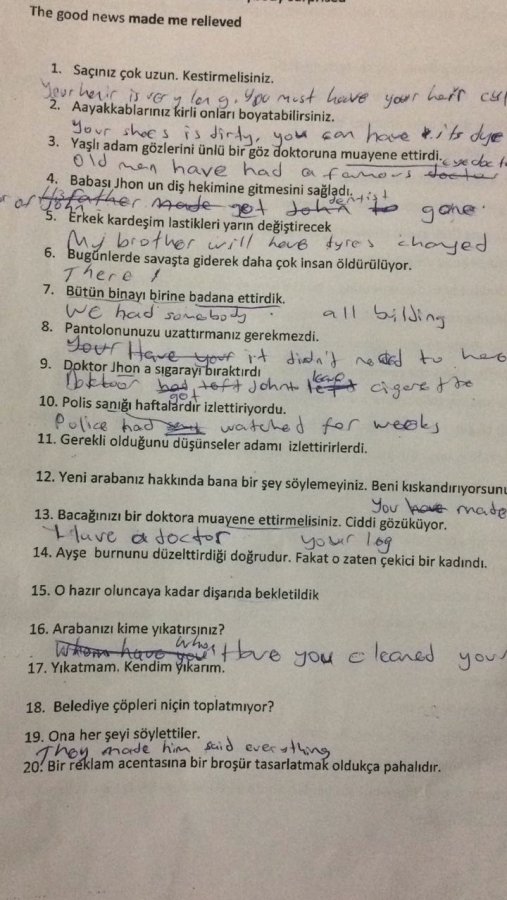 The good news made me relieved
1. Saçınız çok uzun. Kestirmelisiniz.
Your heair is very long. You must heave your hair
2. Aayakkabılarınız kirli onları boyatabilirsiniz.
Your shoes is dirty, you can have its dye
3. Yaşlı adam gözlerini ünlü bir göz doktoruna muayene ettirdi.
Old men have had a famous doctor
4. Babası Jhon un diş hekimine gitmesini sağladı.
His father made get John to dentist gone.
5. Erkek kardeşim lastikleri yarın değiştirecek
My brother will have tyres changed
6. Bugünlerde savaşta giderek daha çok insan öldürülüyor.
There
7. Bütün binayı birine badana ettirdik.
We had somebody all bilding
8. Pantolonunuzu uzattırmanız gerekmezdi.
Your Have your it didn't need to
9. Doktor Jhon a sigarayı bıraktırdı
Doktoor had got John left cigerette
10. Polis sanığı haftalardır izlettiriyordu.
Police had watched for weeks
11. Gerekli olduğunu düşünseler adamı izlettirirlerdi.
12. Yeni arabanız hakkında bana bir şey söylemeyiniz. Beni kıskandırıyorsunu
You have made
13. Bacağınızı bir doktora muayene ettirmelisiniz. Ciddi gözüküyor.
Have a doctor your log
14. Ayşe burnunu düzelttirdiği doğrudur. Fakat o zaten çekici bir kadındı.
15. O hazır oluncaya kadar dışarıda bekletildik
16. Arabanızı kime yıkatırsınız?
Whom have you Who Have you cleaned
17. Yıkatmam. Kendim yıkarım.
18. Belediye çöpleri niçin toplatmıyor?
19. Ona her şeyi söylettiler.
They made him said everything
20. Bir reklam acentasına bir broşür tasarlatmak oldukça pahalıdır.